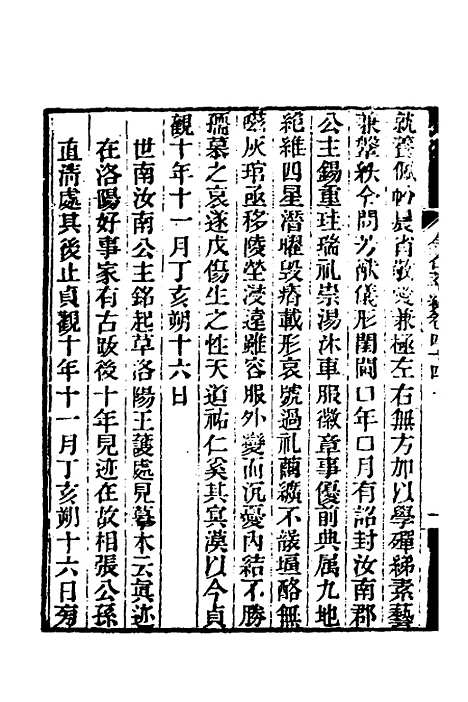 就養佩帉晨省敬愛兼極左右無方加以學殫綈素藝
兼鞶紩令問芳猷儀形閨閫口年口月有詔封汝南郡
公主錫重珪瑞禮崇湯沐車服徽章事優前典属九地
絕維四星潛曜毀瘠載形哀號過礼繭纊不襲塩酪無
嗞灰琯亟移陵塋浸遠雖容服外變而沉憂內結不勝
孺慕之哀遂戊傷生之性天道祐仁奚其冥漠以今貞
觀十年十一月丁亥朔十六日
世南汝南公主銘起草洛陽王護處見摹本云眞迹
在洛陽好事家有古跋後十年見迹在故相張公孫
直清處其後止貞觀十年十一月丁亥朔十六日旁